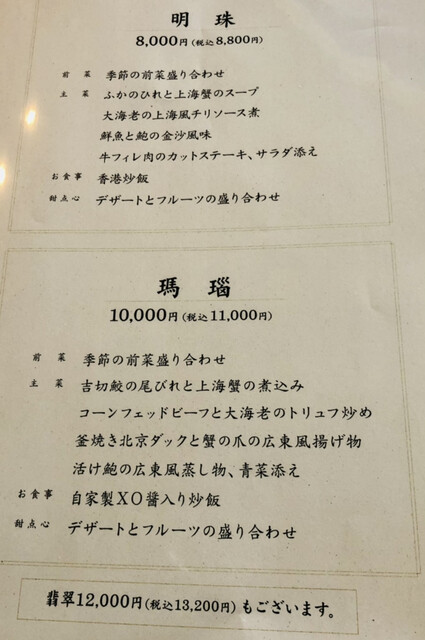 明珠
8,000円(税込8,800円)
前菜 季節の前菜盛り合わせ
主菜 ふかのひれと上海蟹のスープ
大海老の上海風チリソース煮
鮮魚と鮑の金沙風味
牛フィレ肉のカットステーキ、サラダ添え
お食事 香港炒飯
甜点心 デザートとフルーツの盛り合わせ
瑪瑙
10,000円(税込11,000円)
前菜 季節の前菜盛り合わせ
主菜 吉切鮫の尾びれと上海蟹の煮込み
コーンフェッドビーフと大海老のトリュフ炒め
釜焼き北京ダックと蟹の爪の広東風揚げ物
活け鮑の広東風蒸し物、青菜添え
お食事 自家製XO醬入り炒飯
甜点心 デザートとフルーツの盛り合わせ
翡翠12,000円(税込13,200円)もございます。